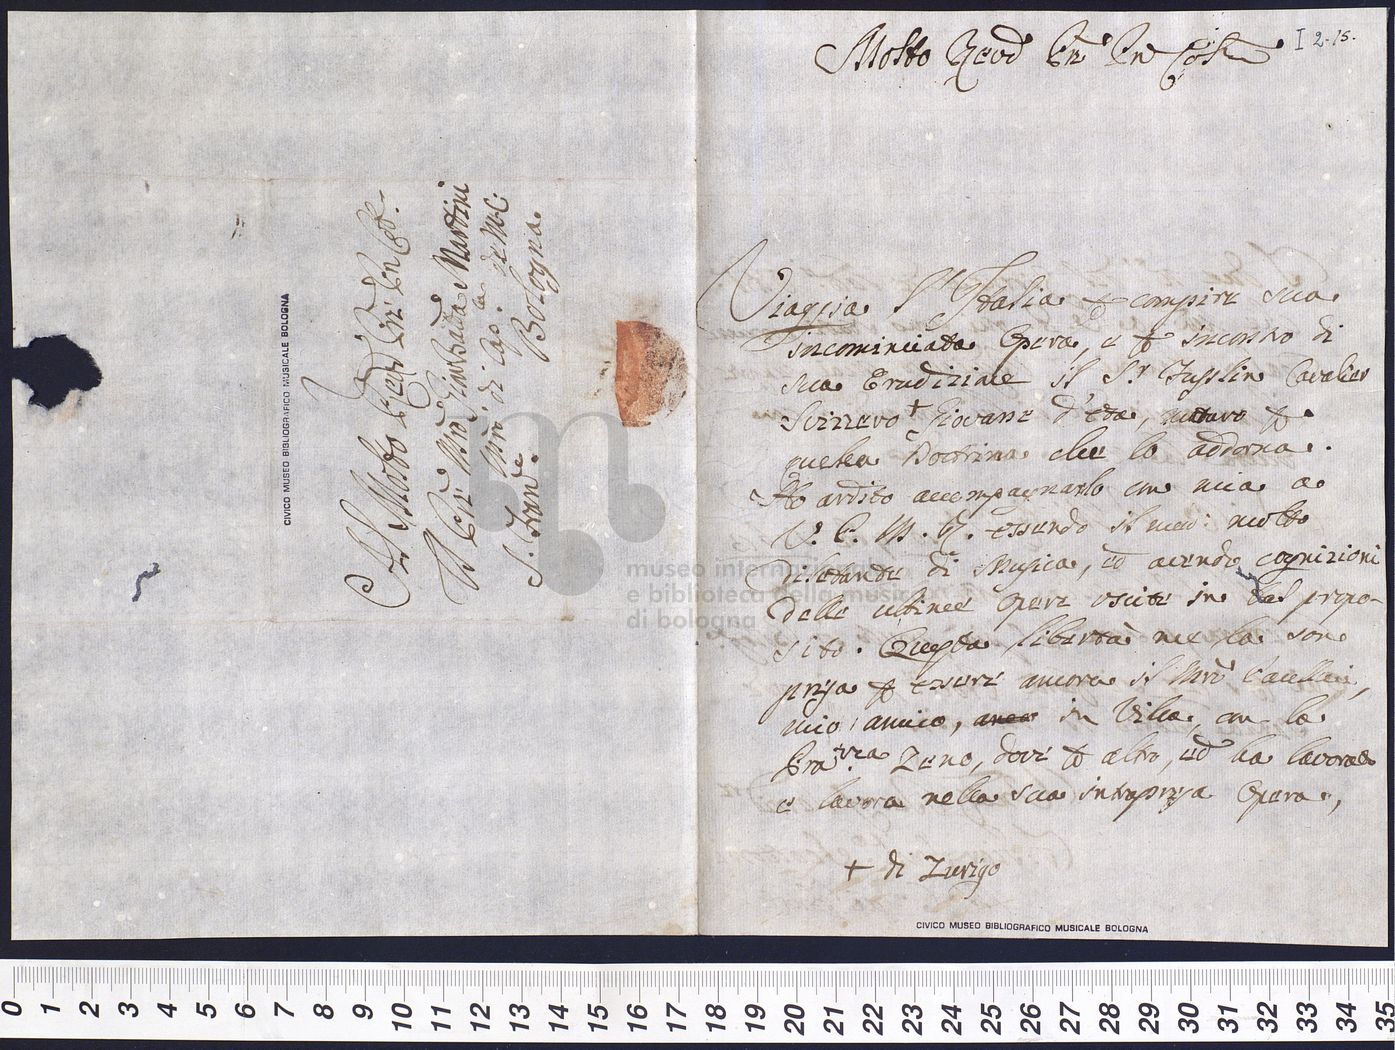 I 2-15.
Molto Revd Pre Prn Col
Viaggia l'Italia p compire sua
incominciata Opera, e p incontro di
sua Erudizione il Sr Fusslin Cavalier
Svizzero + Giovane d'età, maturo p
quella Dottrina che lo addorna.
Ho ardito accompagnarlo con mia a
V. P. M. R. essendo il med: molto
diletante di Musica, ed avendo cognizioni
delle ultime Opere uscite in tal propo-
sito. Questa libertà me la son
presa p essere ancora il Mro
mio amico, in Villa, con la
Zeno, dove p altro, ed ha lavorato
e lavora nella sua intrapresa Opera,
+ di Zurigo
Al Molto Revd Pre Prn Col.
Il Pre Mro Giambatta Martini
Mro di Cap.la de M.C.
S. Franc.
Bologna
5
CIVICO MUSEO BIBLIOGRAFICO MUSICALE BOLOGNA
CIVICO MUSEO BIBLIOGRAFICO MUSICALE BOLOGNA
museo internazionale
e biblioteca della musica
di bologna
0 1 2 3 4 5 6 7 8 9 10 11 12 13 14 15 16 17 18 19 20 21 22 23 24 25 26 27 28 29 30 31 32 33 34 35